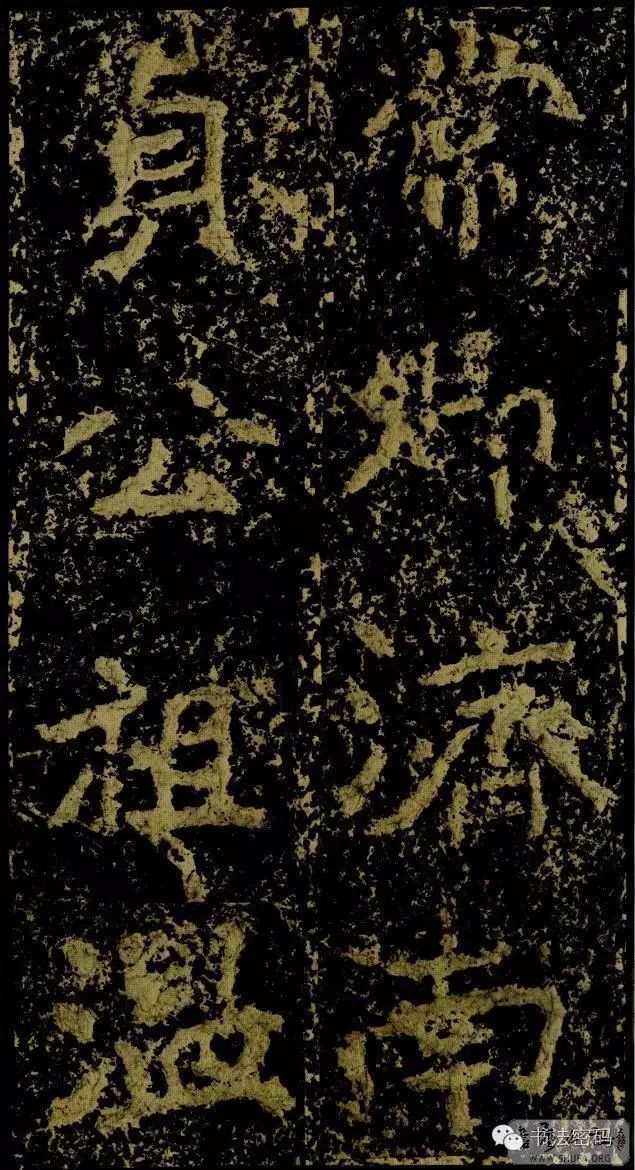 常卿濟南
貞公祖溫
书法密码